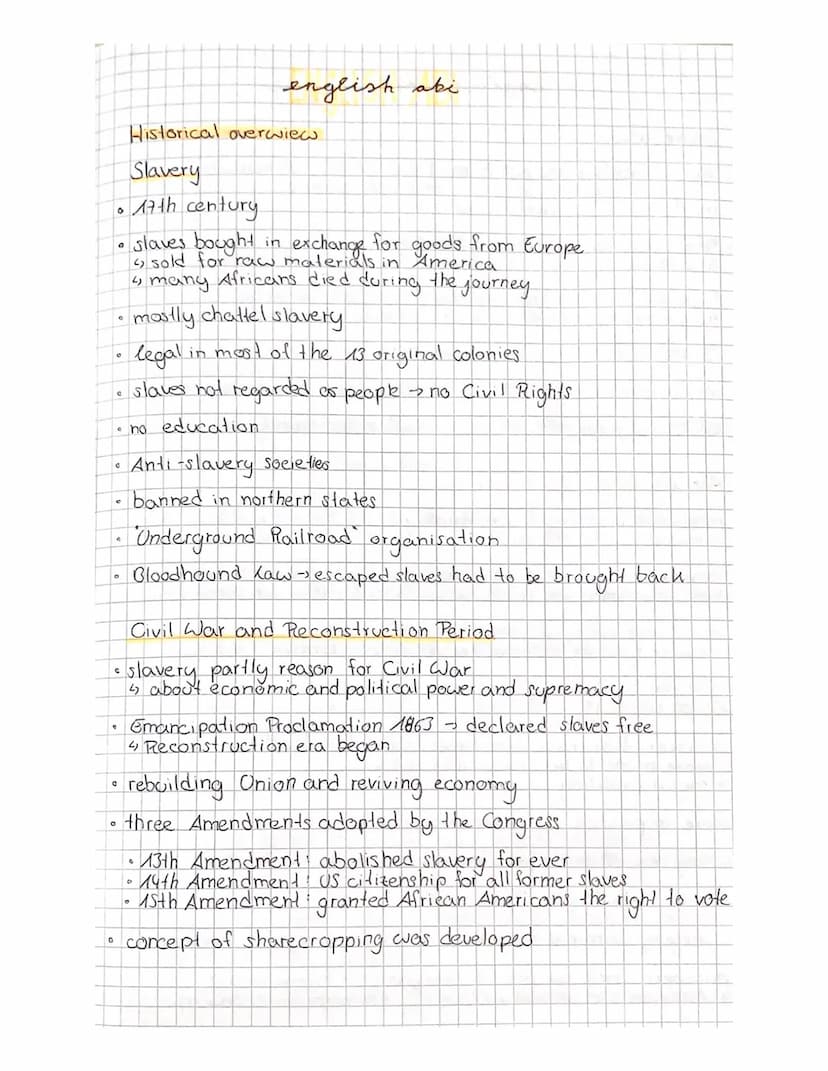 english abi
Historical overwiew
Slavery
• 17th century
• slaves bought in exchange for goods from Europe
↳ sold for raw materials in America
↳ many Africans died during the journey
• mostly chattel slavery
• legal in most of the 13 original colonies
• slaves not regarded as people → no Civil Rights
• no education
• Anti-slavery societies
• banned in northern states
• 'Underground Railroad` organisation
• Bloodhound Law → escaped slaves had to be brought back
Civil War and Reconstruction Period
• slavery partly reason for Civil War
↳ about economic and political power and supremacy
• Emancipation Proclamation 1863 → declared slaves free
↳ Reconstruction era began
• rebuilding Union and reviving economy
• three Amendments adopted by the Congress
• 13th Amendment: abolished slavery for ever
• 14th Amendment: US citizenship for all former slaves
• 15th Amendment: granted African Americans the right to vote
• concept of sharecropping was developed